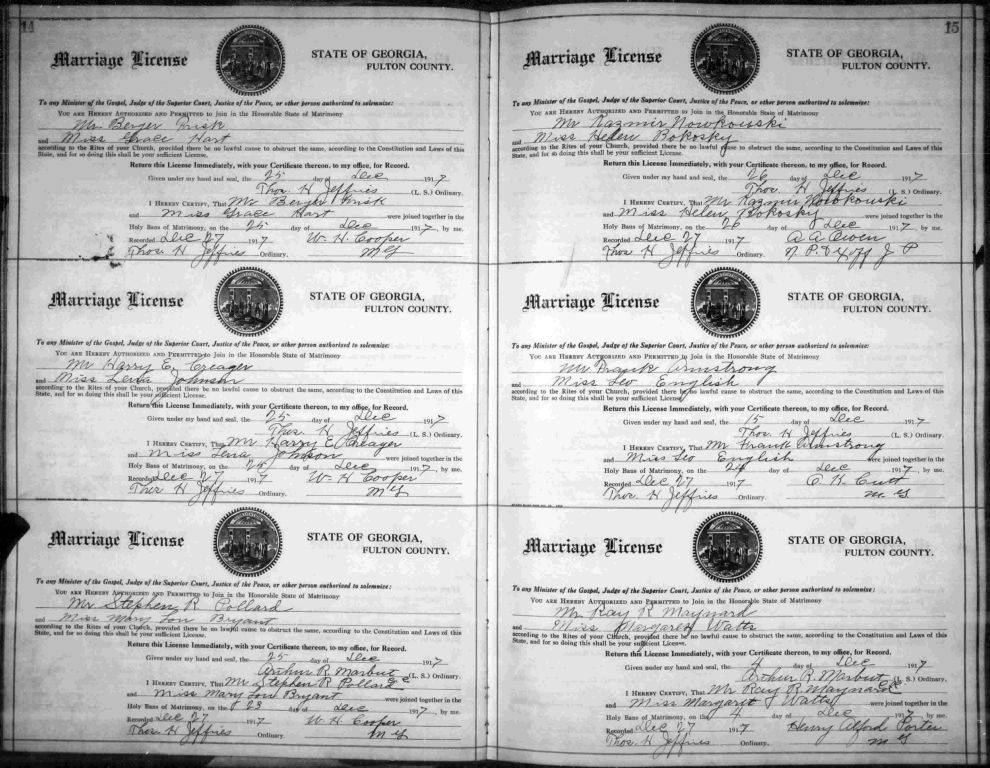 14
Marriage License
STATE OF GEORGIA,
FULTON COUNTY.
To any Minister of the Gospel, Judge of the Superior Court, Justice of the Peace, or other person authorized to solemnize:
YOU ARE HEREBY AUTHORIZED AND PERMITTED to Join in the Honorable State of Matrimony
Mr Berger Frisk
and Miss Grace Hart
according to the Rites of your Church, provided there be no lawful cause to obstruct the same, according to the Constitution and Laws of this
State, and for so doing this shall be your sufficient License.
Return this License Immediately, with your Certificate thereon, to my office, for Record.
Given under my hand and seal, the 25 day of Dec 1917
Thos. H Jeffries (L. S.) Ordinary.
I HEREBY CERTIFY, That Mr Berger Frisk
and Miss Grace Hart were joined together in the
Holy Bans of Matrimony, on the 25 day of Dec 1917, by me.
Recorded Dec 27 1917 W. H. Cooper
Thos. H Jeffries Ordinary. M G
Marriage License
STATE OF GEORGIA,
FULTON COUNTY.
To any Minister of the Gospel, Judge of the Superior Court, Justice of the Peace, or other person authorized to solemnize:
YOU ARE HEREBY AUTHORIZED AND PERMITTED to Join in the Honorable State of Matrimony
Mr Harry E. Creager
and Miss Lena Johnson
according to the Rites of your Church, provided there be no lawful cause to obstruct the same, according to the Constitution and Laws of this
State, and for so doing this shall be your sufficient License.
Return this License Immediately, with your Certificate thereon, to my office, for Record.
Given under my hand and seal, the 25 day of Dec 1917
Thos. H Jeffries (L. S.) Ordinary.
I HEREBY CERTIFY, That Mr Harry E Creager
and Miss Lena Johnson were joined together in the
Holy Bans of Matrimony, on the 25 day of Dec 1917, by me.
Recorded Dec 27 1917 W. H Cooper
Thos H Jeffries Ordinary. M G
Marriage License
STATE OF GEORGIA,
FULTON COUNTY.
To any Minister of the Gospel, Judge of the Superior Court, Justice of the Peace, or other person authorized to solemnize:
YOU ARE HEREBY AUTHORIZED AND PERMITTED to Join in the Honorable State of Matrimony
Mr Stephen R Pollard
and Miss Mary Lou Bryant
according to the Rites of your Church, provided there be no lawful cause to obstruct the same, according to the Constitution and Laws of this
State, and for so doing this shall be your sufficient License.
Return this License Immediately, with your Certificate thereon, to my office, for Record.
Given under my hand and seal, the 25 day of Dec 1917
Arthur R. Marbut (L. S.) Ordinary.
I HEREBY CERTIFY, That Mr Stephen R. Pollard
and Miss Mary Lou Bryant were joined together in the
Holy Bans of Matrimony, on the 23 day of Dec 1917, by me.
Recorded Dec 27 1917 W. H. Cooper
Thos H Jeffries Ordinary. M G
15
Marriage License
STATE OF GEORGIA,
FULTON COUNTY.
To any Minister of the Gospel, Judge of the Superior Court, Justice of the Peace, or other person authorized to solemnize:
YOU ARE HEREBY AUTHORIZED AND PERMITTED to Join in the Honorable State of Matrimony
Mr Kazmir Nowkowski
and Miss Helen Rokosky
according to the Rites of your Church, provided there be no lawful cause to obstruct the same, according to the Constitution and Laws of this
State, and for so doing this shall be your sufficient License.
Return this License Immediately, with your Certificate thereon, to my office, for Record.
Given under my hand and seal, the 26 day of Dec 1917
Thos. H Jeffries (L. S.) Ordinary.
I HEREBY CERTIFY, That Mr Kazmir Nowkowski
and Miss Helen Rokosky were joined together in the
Holy Bans of Matrimony, on the 26 day of Dec 1917, by me.
Recorded Dec 27 1917 A A Owen
Thos. H Jeffries Ordinary. N. P. & Ex off J P
Marriage License
STATE OF GEORGIA,
FULTON COUNTY.
To any Minister of the Gospel, Judge of the Superior Court, Justice of the Peace, or other person authorized to solemnize:
YOU ARE HEREBY AUTHORIZED AND PERMITTED to Join in the Honorable State of Matrimony
Mr Frank Armstrong
and Miss Leo English
according to the Rites of your Church, provided there be no lawful cause to obstruct the same, according to the Constitution and Laws of this
State, and for so doing this shall be your sufficient License.
Return this License Immediately, with your Certificate thereon, to my office, for Record.
Given under my hand and seal, the 15 day of Dec 1917
Thos. H Jeffries (L. S.) Ordinary.
I HEREBY CERTIFY, That Mr Frank Armstrong
and Miss Leo English were joined together in the
Holy Bans of Matrimony, on the 24 day of Dec 1917, by me.
Recorded Dec 27 1917
Thos. H Jeffries Ordinary. M G
Marriage License
STATE OF GEORGIA,
FULTON COUNTY.
To any Minister of the Gospel, Judge of the Superior Court, Justice of the Peace, or other person authorized to solemnize:
YOU ARE HEREBY AUTHORIZED AND PERMITTED to Join in the Honorable State of Matrimony
Mr Ray R Maynard
and Miss Margaret Watts
according to the Rites of your Church, provided there be no lawful cause to obstruct the same, according to the Constitution and Laws of this
State, and for so doing this shall be your sufficient License.
Return this License Immediately, with your Certificate thereon, to my office, for Record.
Given under my hand and seal, the 4 day of Dec 1917
Arthur R. Marbut (L. S.) Ordinary.
I HEREBY CERTIFY, That Mr Ray R. Maynard
and Miss Margaret Watts were joined together in the
Holy Bans of Matrimony, on the 4 day of Dec 1917, by me.
Recorded Dec 27 1917 Henry Alford Porter
Thos. H Jeffries Ordinary. M G